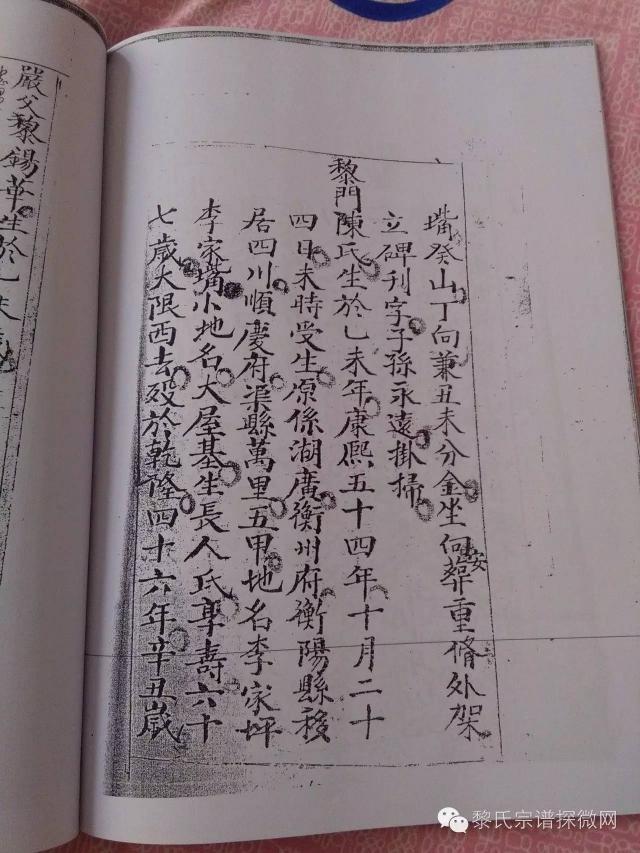 嘴癸山丁向兼丑未分金坐向安葬重脩外架
立碑刊字子孫永遠掛掃
黎門陳氏生於乙未年康熙五十四年十月二十
四日未時受生原係湖廣衡州府衡陽縣移
居四川順慶府渠縣萬里五甲地名李家坪
李家嘴小地名大屋基生長人氏享壽六十
七歲大限西去殁於乾隆四十六年辛丑歲
嚴父黎錫華生於乙未
黎氏宗谱探微网